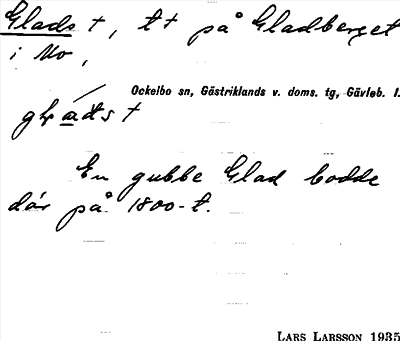 Glads t, t+ på Gladberget
i Mo,
Ockelbo sn, Gästriklands v. doms. tg, Gävleb. l.
En gubbe Glad bodde
där på 1800-t.
LARS LARSSON 1935